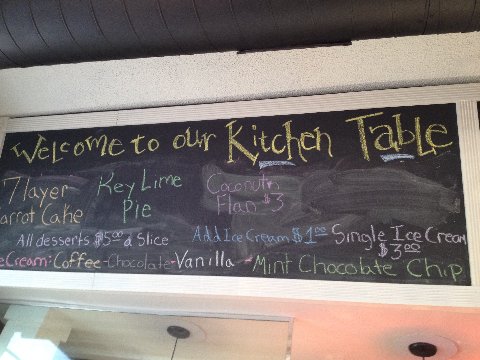 Welcome to our Kitchen Table
7 layer Key Lime Coconut
arrot Cake Pie Flan $3
All desserts $5.00 a Slice Add Ice Cream $1.00 Single Ice Cream
$3.00
eCream: Coffee-Chocolate-Vanilla - Mint Chocolate Chip